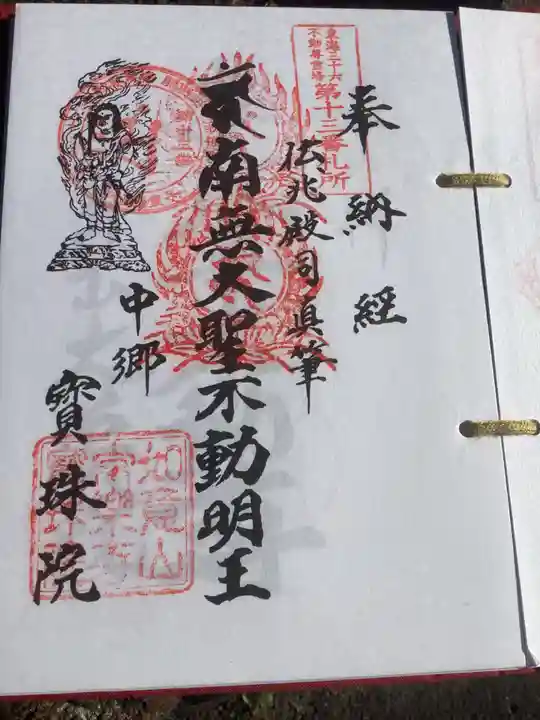 奉納経
東海三十六
不動尊霊場
第十三番札所
仏兆殿司真筆
南無大聖不動明王
中郷
寳珠院
如意山